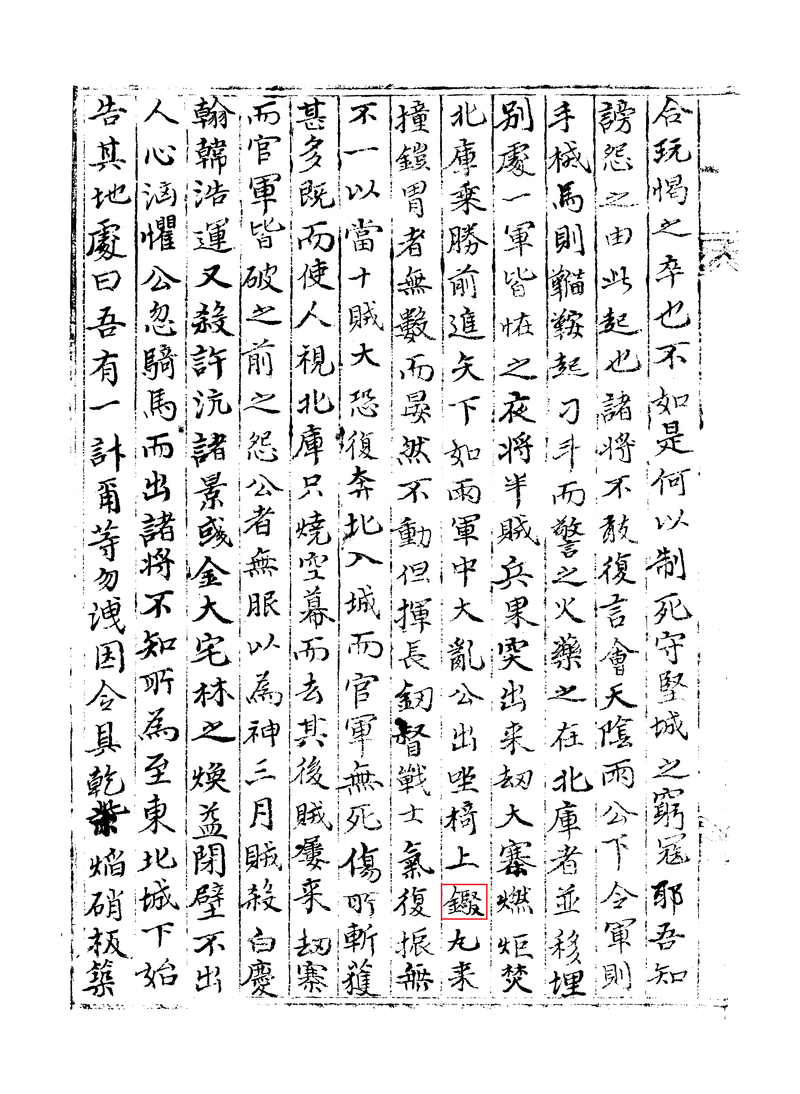 合玩愒之卒也不如是何以制死守堅城之窮寇耶吾知
謗怨之由此起也諸將不敢復言會天陰雨公下令軍則
手械馬則韁鞍起刁斗而警之火藥之在北庫者並移埋
別處一軍皆恠之夜將半賊兵果突出来刼大寨燃炬焚
北庫乗勝前進矢下如雨軍中大亂公出坐椅上鐙丸来
撞鎧冑者無數而晏然不動但揮長釼督戰士氣復振無
不一以當十賊大恐復奔北入城而官軍無死傷所斬獲
甚多既而使人視北庫只燒空幕而去其後賊屢来刼寨
而官軍皆破之前之怨公者無眠以為神三月賊殺白慶
翰韓浩運又殺許沆諸景彧金大宅林之煥益閉壁不出
人心洶懼公忽騎馬而出諸將不知所為至東北城下始
告其地處曰吾有一計爾等勿洩因令具乾柴焰硝板築